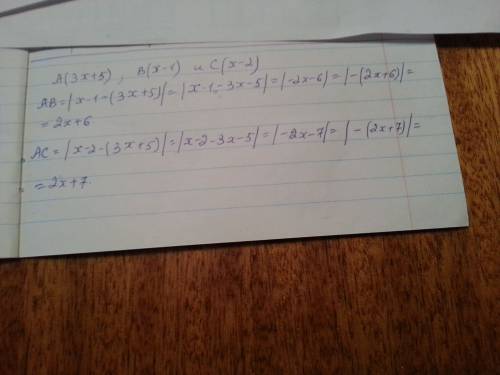 A(3x+5), B(x-1) и C(x-2)
AB=|x-1-(3x+5)|=|x-1-3x-5|=|-2x-6|=|-(2x+6)|=
=2x+6
AC=|x-2-(3x+5)|=|x-2-3x-5|=|-2x-7|=|-(2x+7)|=
=2x+7.